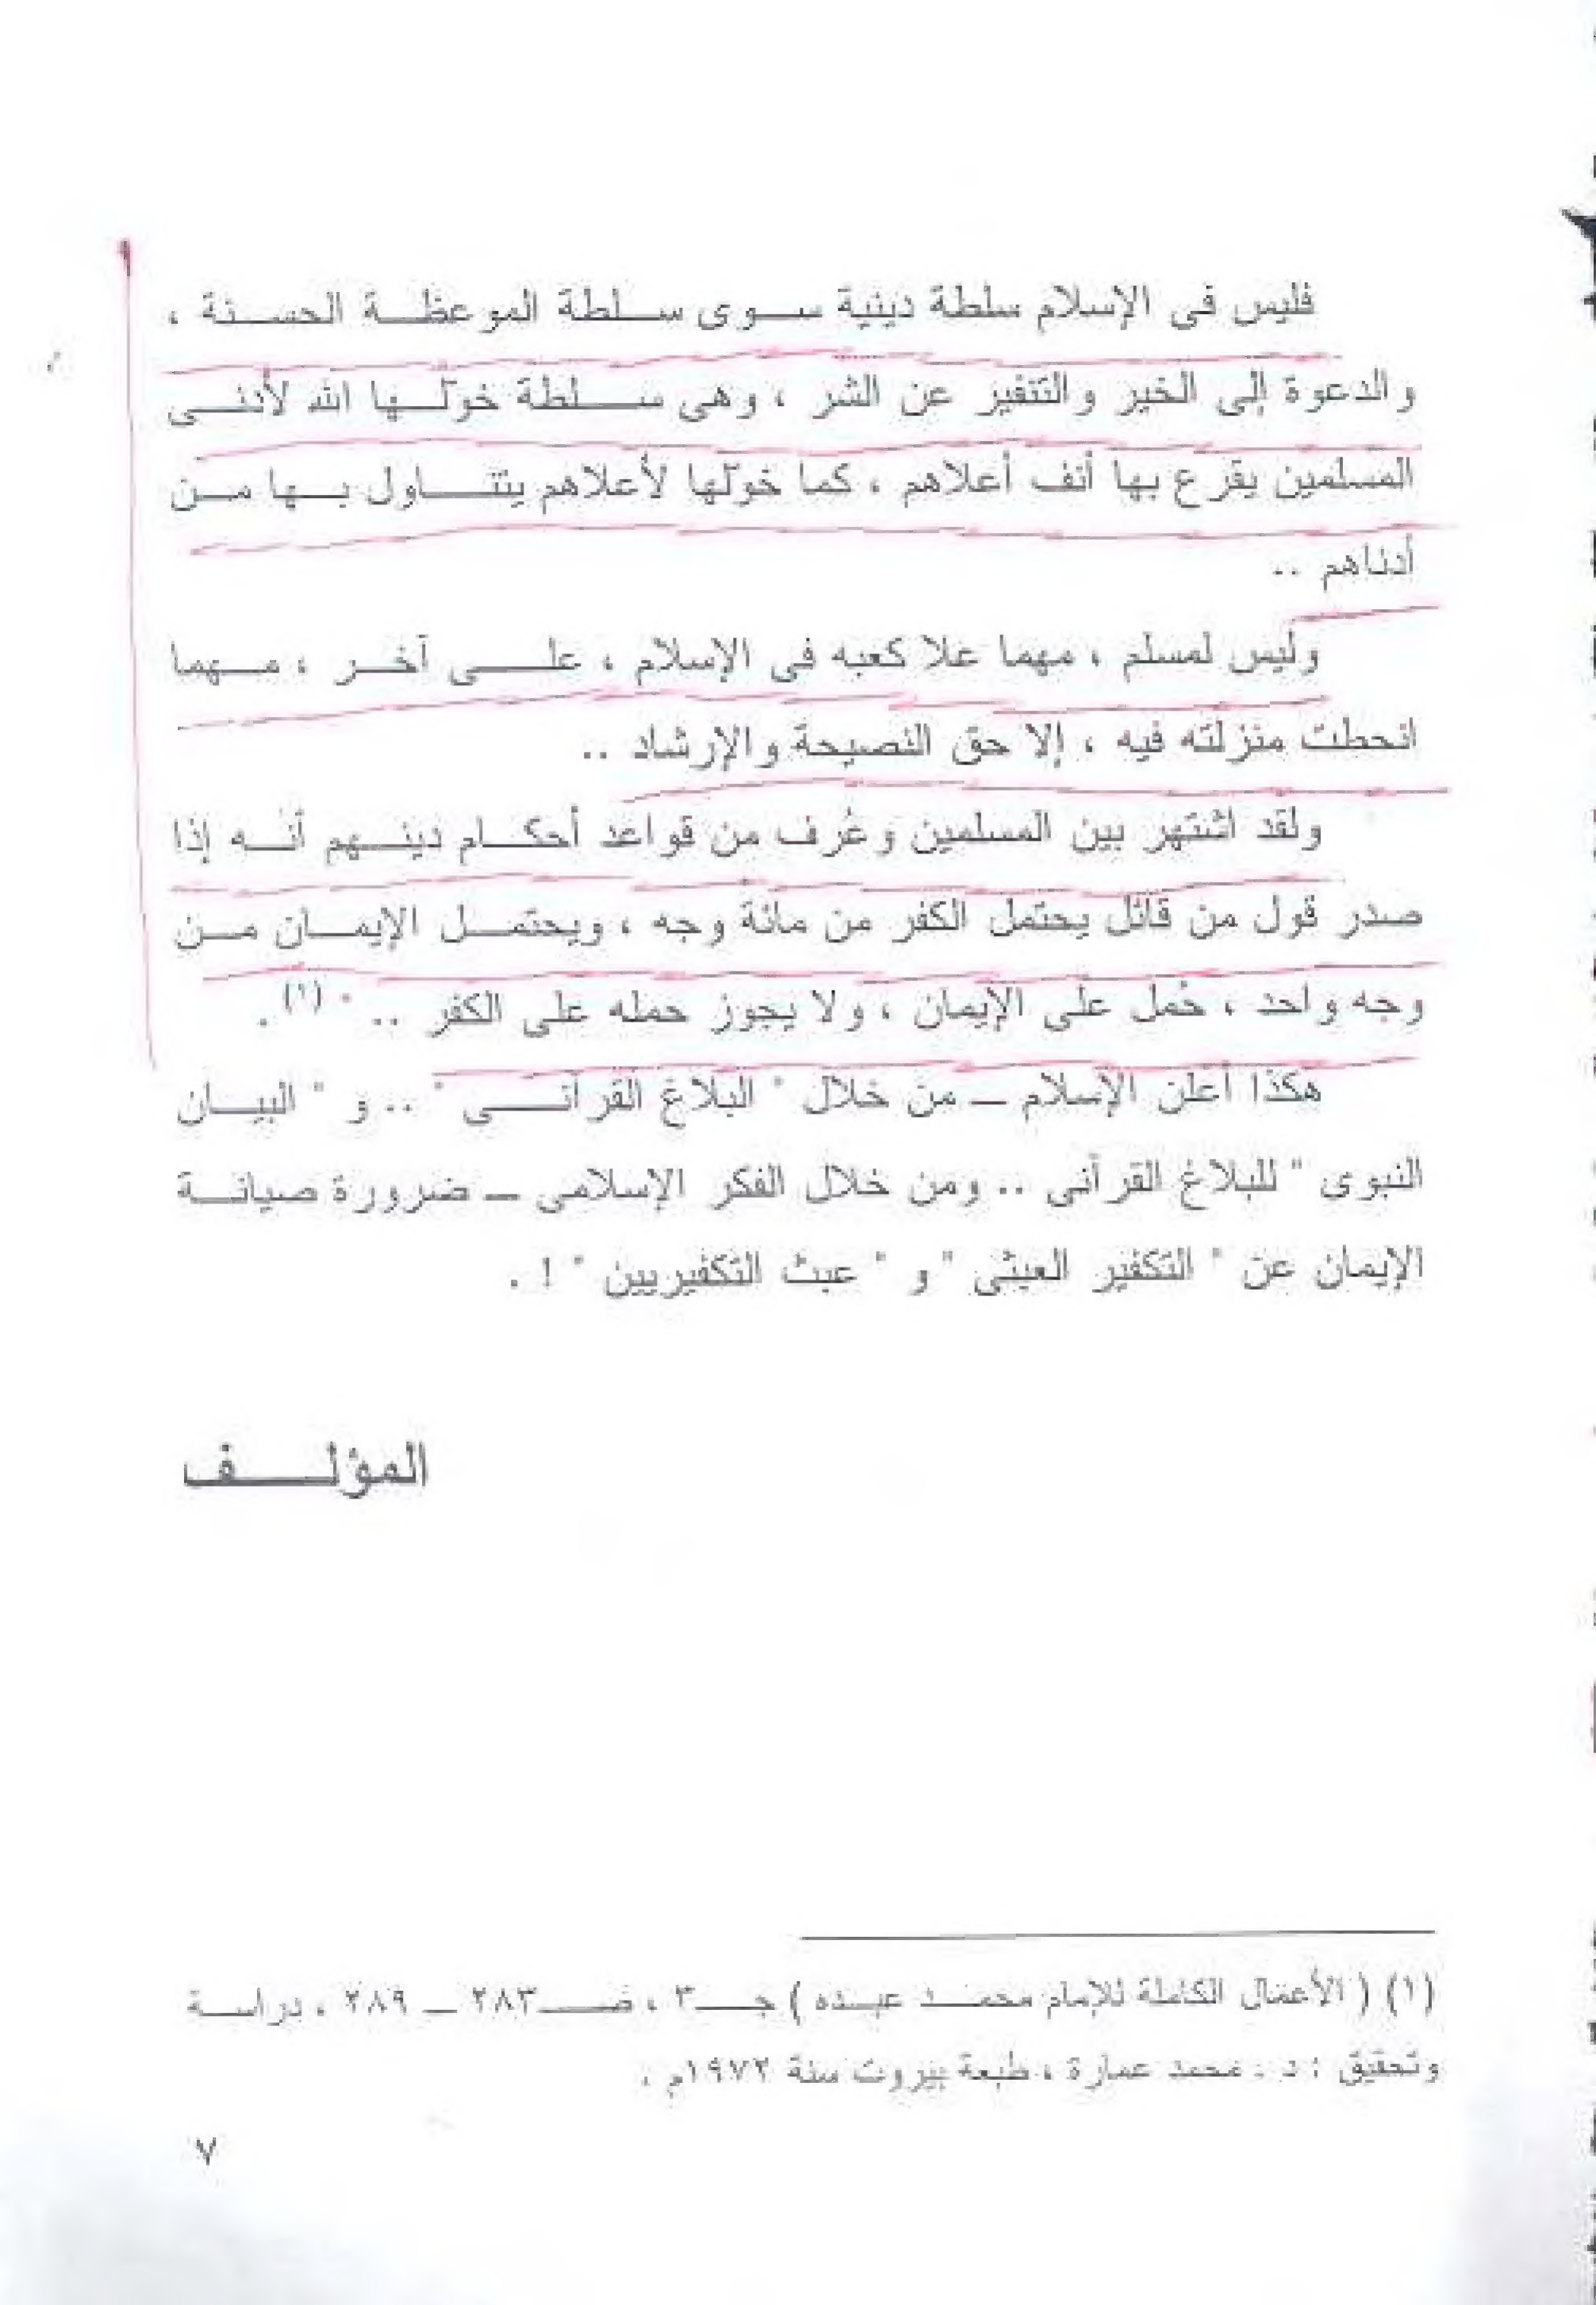 فليس فى الإسلام سلطة دينية سوى سلطة الموعظة الحسنة ،
والدعوة إلى الخير والتنفير عن الشر ، وهى سلطة خولّها الله لأدنى
المسلمين يقرع بها أنف أعلاهم ، كما خولّها لأعلاهم يتناول بها من
أدناهم ..
وليس لمسلم ، مهما علا كعبه فى الإسلام ، على آخر ، مهما
انحطت منزلته فيه ، إلا حق النصيحة والإرشاد ..
ولقد اشتهر بين المسلمين وعُرف من قواعد أحكام دينهم أنه إذا
صدر قول من قائل يحتمل الكفر من مائة وجه ، ويحتمل الإيمان من
وجه واحد ، حُمل على الإيمان ، ولا يجوز حمله على الكفر .. " (١) .
هكذا أعلن الإسلام – من خلال " البلاغ القرآنى " .. و " البيان
النبوى " للبلاغ القرآنى .. ومن خلال الفكر الإسلامى – ضرورة صيانة
الإيمان عن " التكفير العبثى " و " عبث التكفيريين " ! .
المؤلف
(١) ( الأعمال الكاملة للإمام محمد عبده ) جـ٣ ، صـ٢٨٣ – ٢٨٩ ، دراسة
وتحقيق : د . محمد عمارة ، طبعة بيروت سنة ١٩٧٢م .
٧